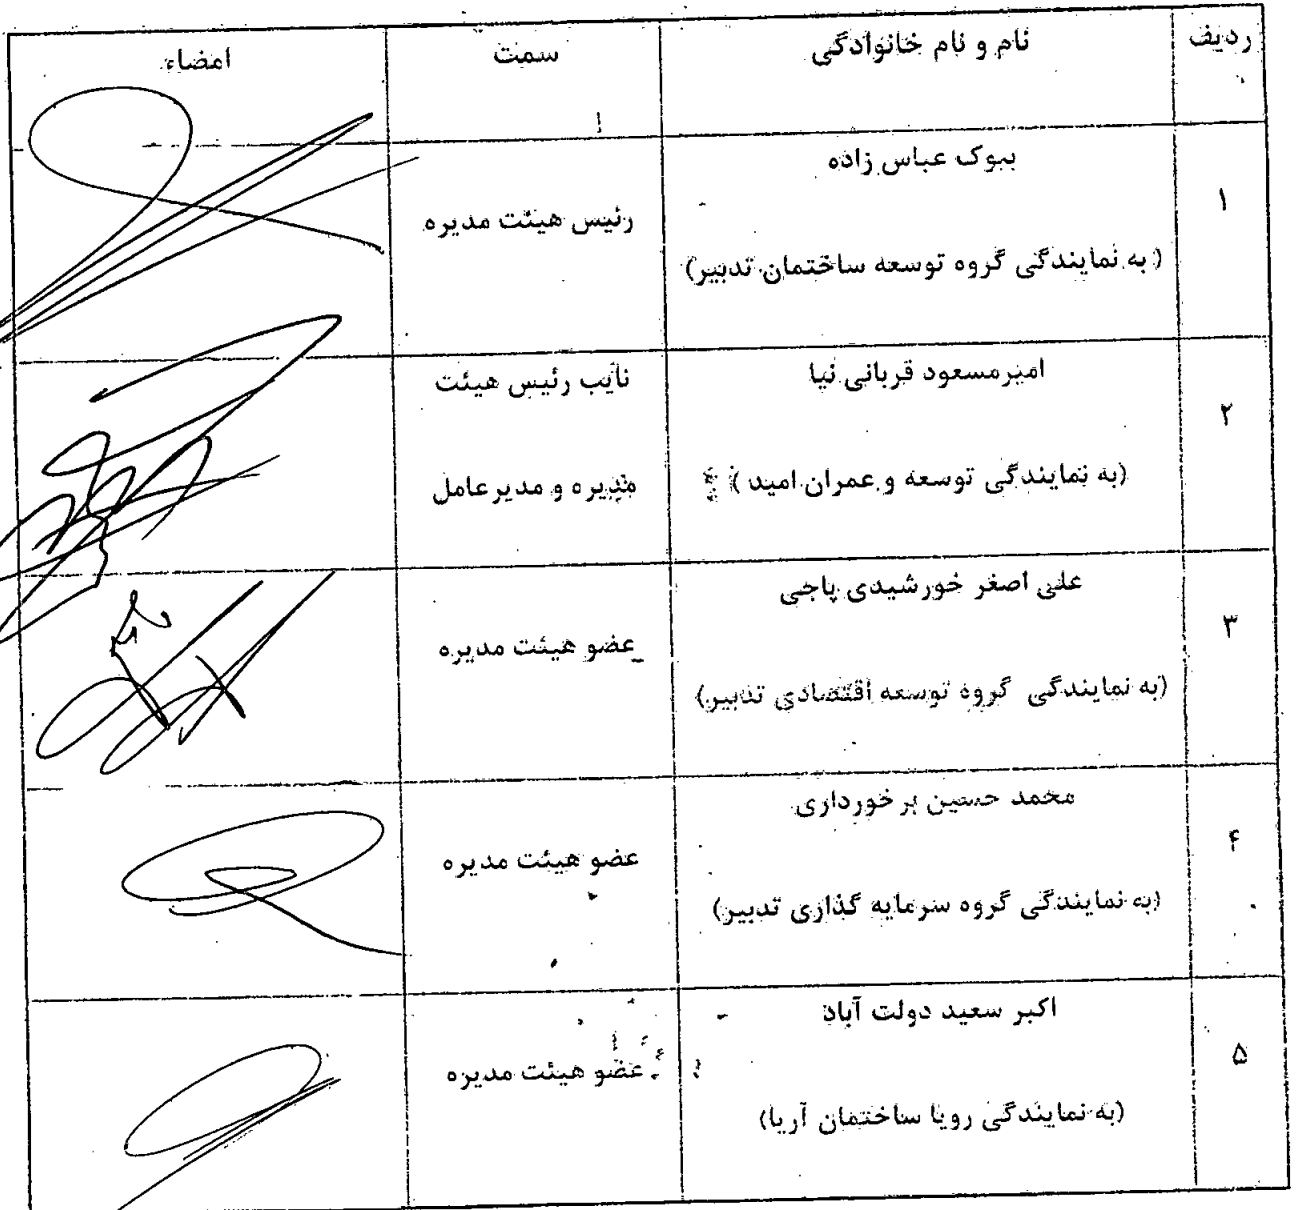 ردیف نام و نام خانوادگی سمت امضاء
۱ بیوک عباس زاده
(به نمایندگی گروه توسعه ساختمان تدبیر) رئیس هیئت مدیره
۲ امیرمسعود قربانی نیا
(به نمایندگی توسعه و عمران امید) نایب رئیس هیئت
مدیره و مدیرعامل
۳ علی اصغر خورشیدی پاجی
(به نمایندگی گروه توسعه اقتصادی تدبیر) عضو هیئت مدیره
۴ محمد حسین برخورداری
(به نمایندگی گروه سرمایه گذاری تدبیر) عضو هیئت مدیره
۵ اکبر سعید دولت آباد
(به نمایندگی رویا ساختمان آریا) عضو هیئت مدیره